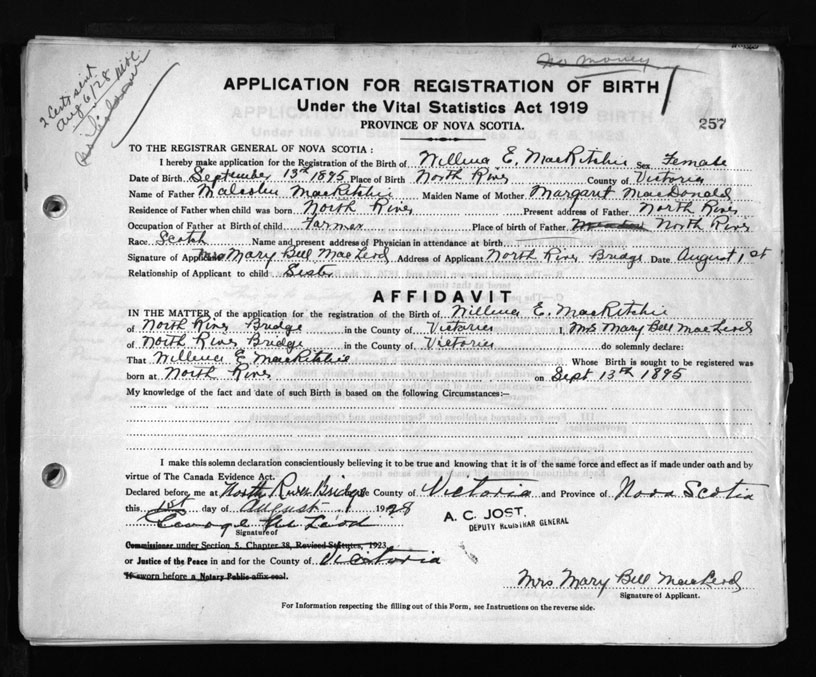 2 Certs sent
Aug 6/28
No money
APPLICATION FOR REGISTRATION OF BIRTH
Under the Vital Statistics Act 1919
PROVINCE OF NOVA SCOTIA.
257
TO THE REGISTRAR GENERAL OF NOVA SCOTIA :
I hereby make application for the Registration of the Birth of Willena E. MacRitchie Sex Female
Date of Birth September 13th 1895 Place of Birth North River County of Victoria
Name of Father Malcolm MacRitchie Maiden Name of Mother Margaret MacDonald
Residence of Father when child was born North River Present address of Father North River
Occupation of Father at Birth of child Farmer Place of birth of Father North River
Race Scotch Name and present address of Physician in attendance at birth
Signature of Applicant Mrs Mary Bell MacLeod Address of Applicant North River Bridge Date August 1st
Relationship of Applicant to child Sister
AFFIDAVIT
IN THE MATTER of the application for the registration of the Birth of Willena E. MacRitchie
of North River Bridge in the County of Victoria I, Mrs Mary Bell MacLeod
of North River Bridge in the County of Victoria do solemnly declare:
That Willena E MacRitchie Whose Birth is sought to be registered was
born at North River on Sept 13th 1895
My knowledge of the fact and date of such Birth is based on the following Circumstances:—
I make this solemn declaration conscientiously believing it to be true and knowing that it is of the same force and effect as if made under oath and by
virtue of The Canada Evidence Act.
Declared before me at North River Bridge County of Victoria and Province of Nova Scotia
this 1st day of August 1928
A. C. JOST.
DEPUTY REGISTRAR GENERAL
George McLeod
Signature of
Commissioner under Section 5, Chapter 38, Revised Statutes, 1923
or Justice of the Peace in and for the County of Victoria
If sworn before a Notary Public affix seal.
Mrs Mary Bell MacLeod
Signature of Applicant.
For Information respecting the filling out of this Form, see Instructions on the reverse side.